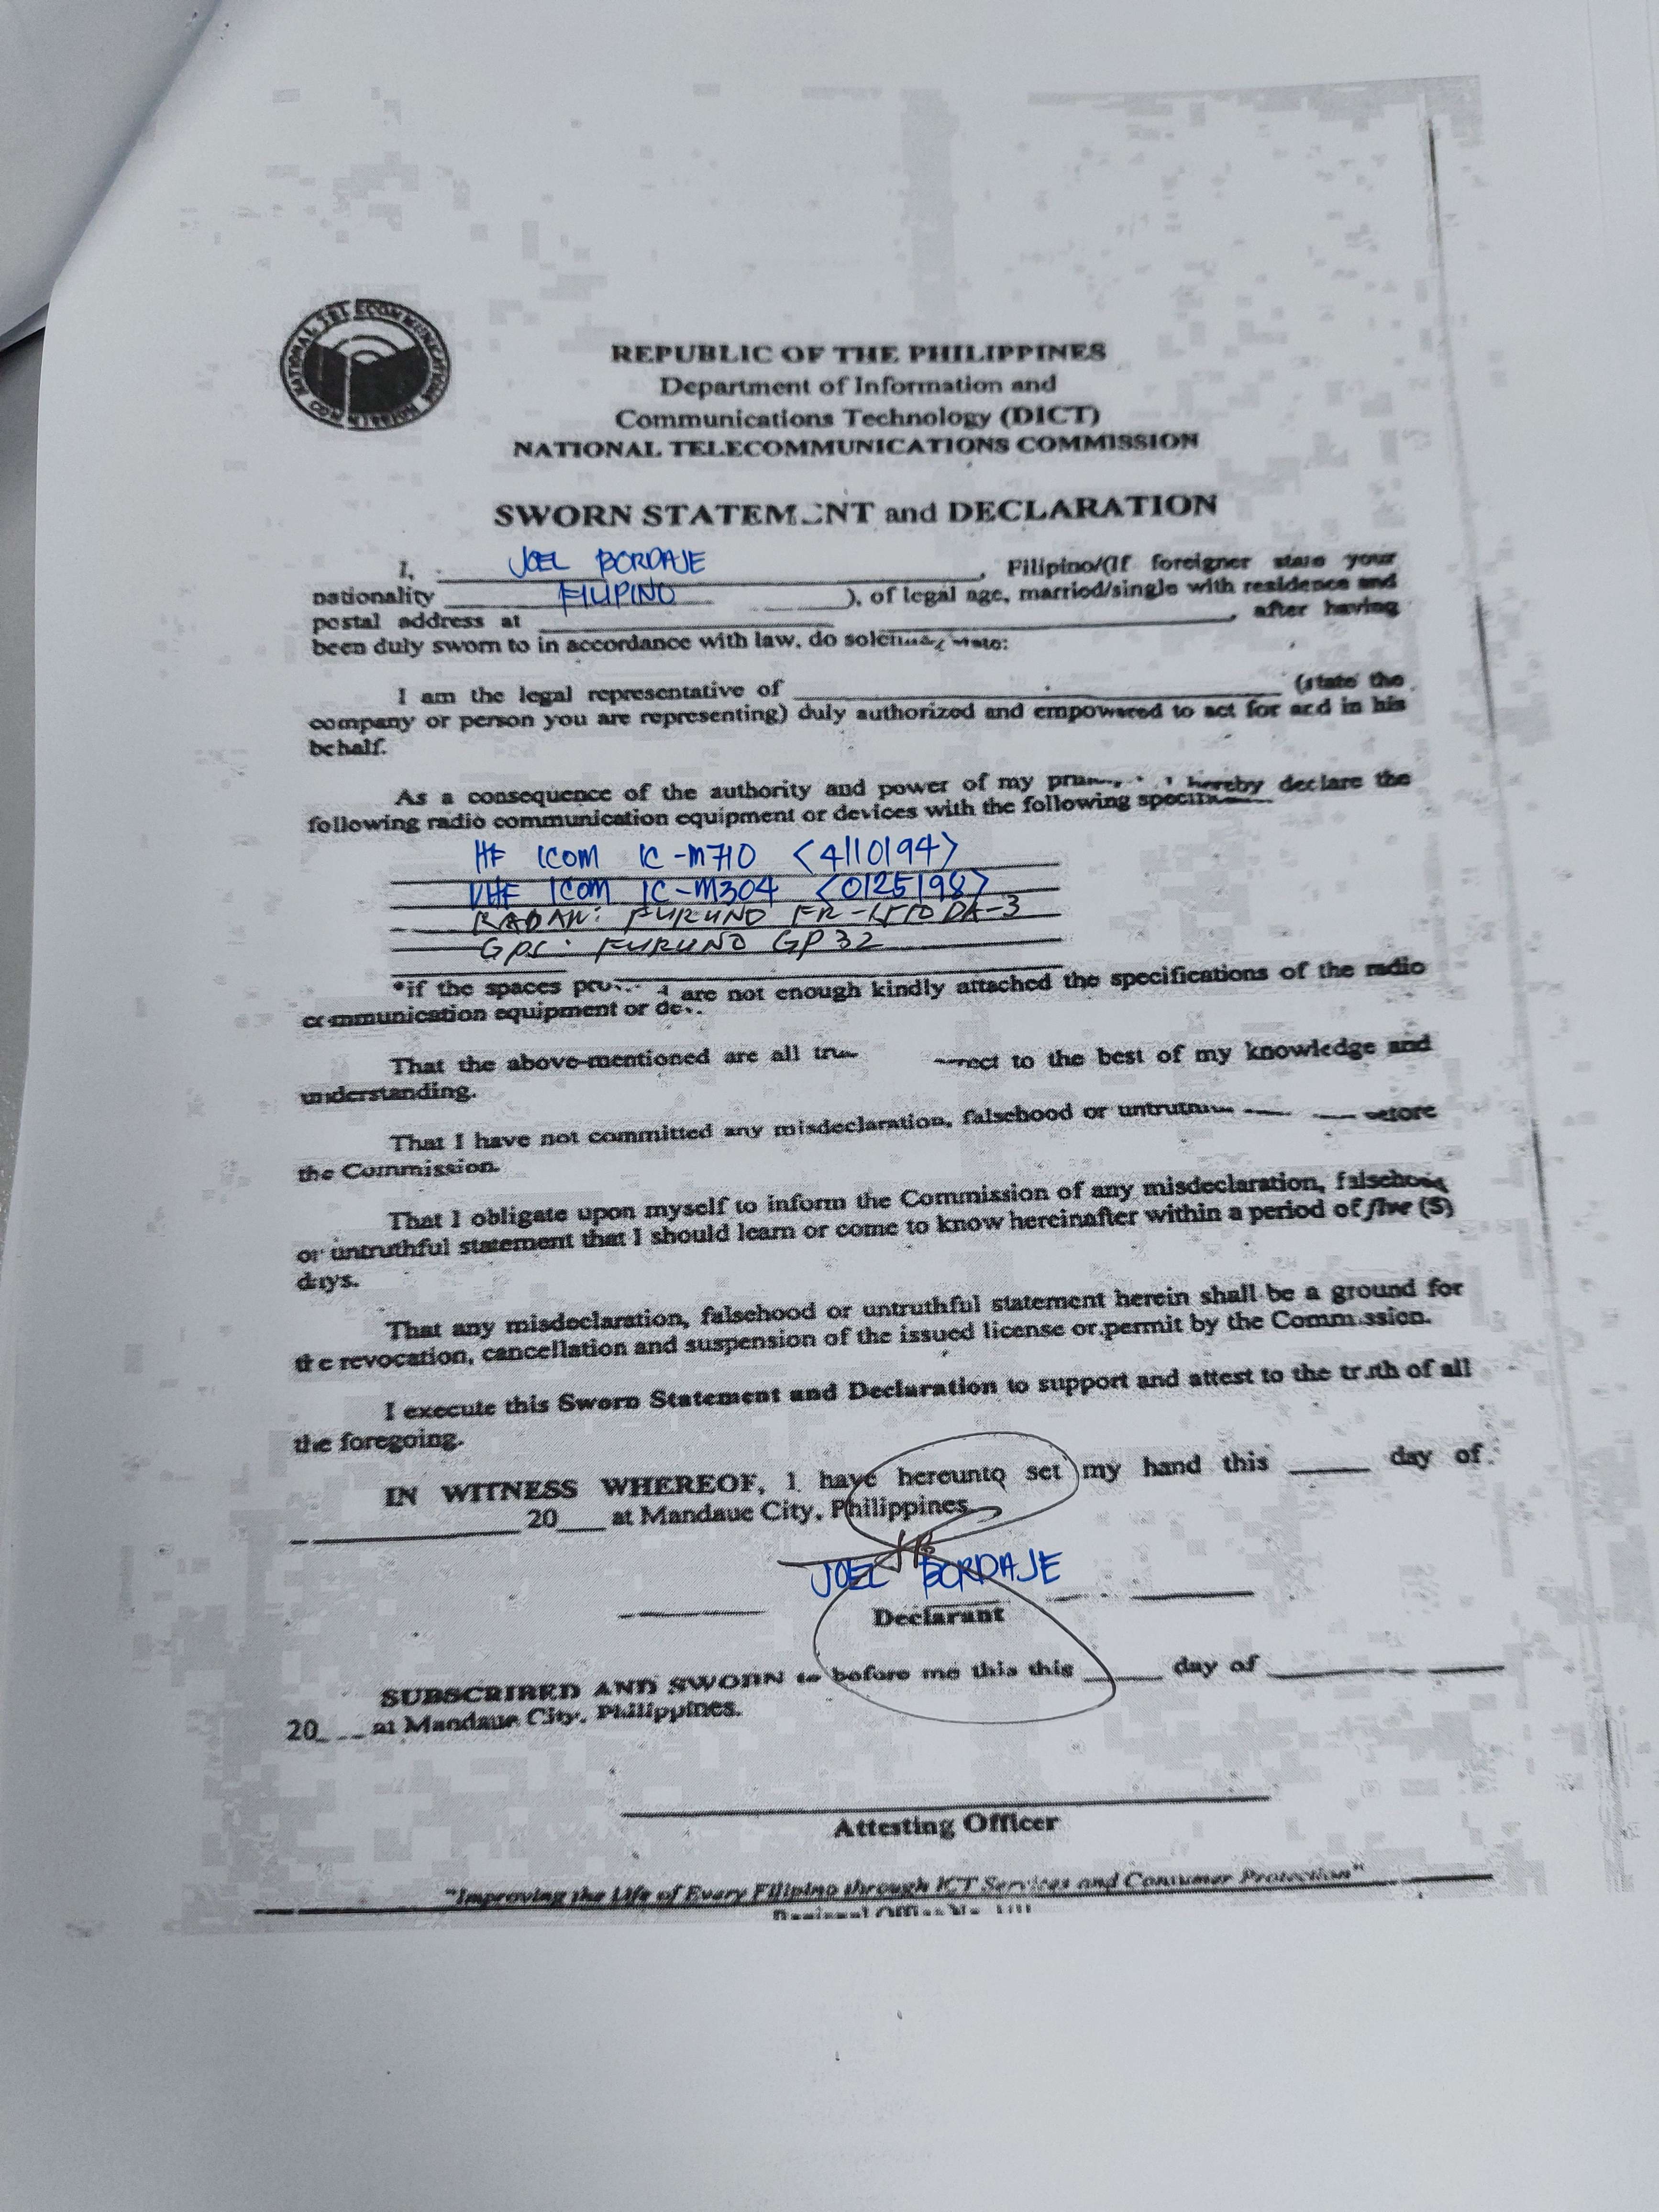 NATIONAL TELECOMMUNICATIONS COMMISSION
REPUBLIC OF THE PHILIPPINES
Department of Information and
Communications Technology (DICT)
NATIONAL TELECOMMUNICATIONS COMMISSION
SWORN STATEMENT and DECLARATION
I, JOEL BORDAJE, Filipino/(If foreigner state your
nationality FILIPINO ), of legal age, married/single with residence and
postal address at ____, after having
been duly sworn to in accordance with law, do
I am the legal representative of ____ (state the
company or person you are representing) duly authorized and empowered to act for and in his
behalf.
As a consequence of the authority and power of my hereby declare the
following radio communication equipment or devices with the following
HF ICOM IC-M710 <4110194>
VHF ICOM IC-M304 <0125198>
RADAR: FURUNO DA-3
GPS: FURUNO GP 32
*if the spaces are not enough kindly attached the specifications of the radio
communication equipment or
That the above-mentioned are all to the best of my knowledge and
understanding.
That I have not committed any misdeclaration, falsehood or
the Commission.
That I obligate upon myself to inform the Commission of any misdeclaration, falsehood
or untruthful statement that I should learn or come to know hereinafter within a period of five (5)
days.
That any misdeclaration, falsehood or untruthful statement herein shall be a ground for
the revocation, cancellation and suspension of the issued license or permit by the Commission.
I execute this Sworn Statement and Declaration to support and attest to the truth of all
the foregoing.
IN WITNESS WHEREOF, I have hereunto set my hand this ____ day of
____ 20__ at Mandaue City, Philippines
JOEL BORDAJE
Declarant
SUBSCRIBED AND SWORN to before me this this ____ day of ____
20__ at Mandaue City, Philippines.
Attesting Officer
"Improving the Life of Every Filipino through ICT Services and Consumer Protection"